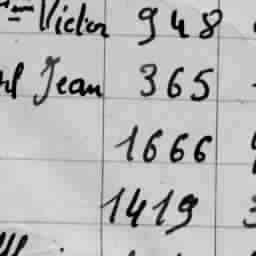 Victor 948
Jean 365
1666
1419